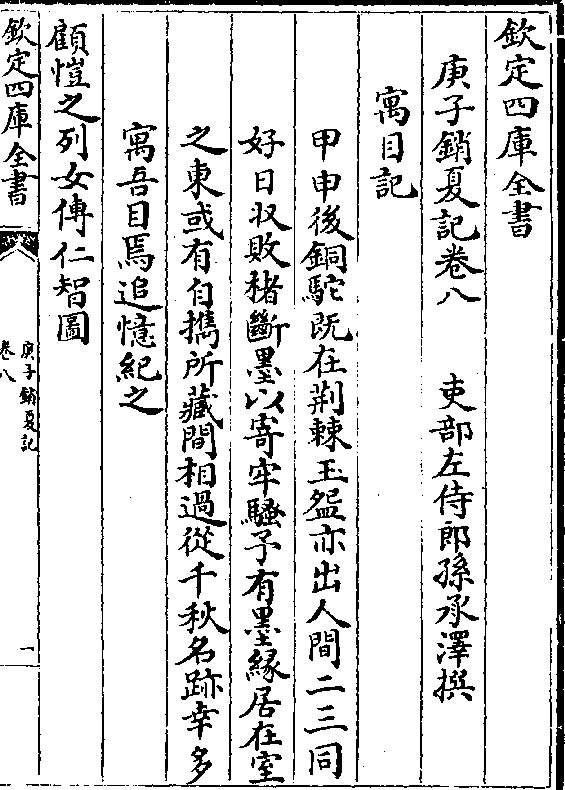 欽定四庫全書
庚子銷夏記卷八　吏部左侍郎孫承澤撰
寓目記
甲申後銅駝既在荆棘玉盌亦出人間二三同
好日収敗楮斷墨以寄牢騷予有墨緣居在室
之東或有自攜所藏間相過從千秋名跡幸多
寓吾目焉追憶紀之
顧愷之列女傳仁智圖
欽定四庫全書
庚子銷夏記
卷八
一